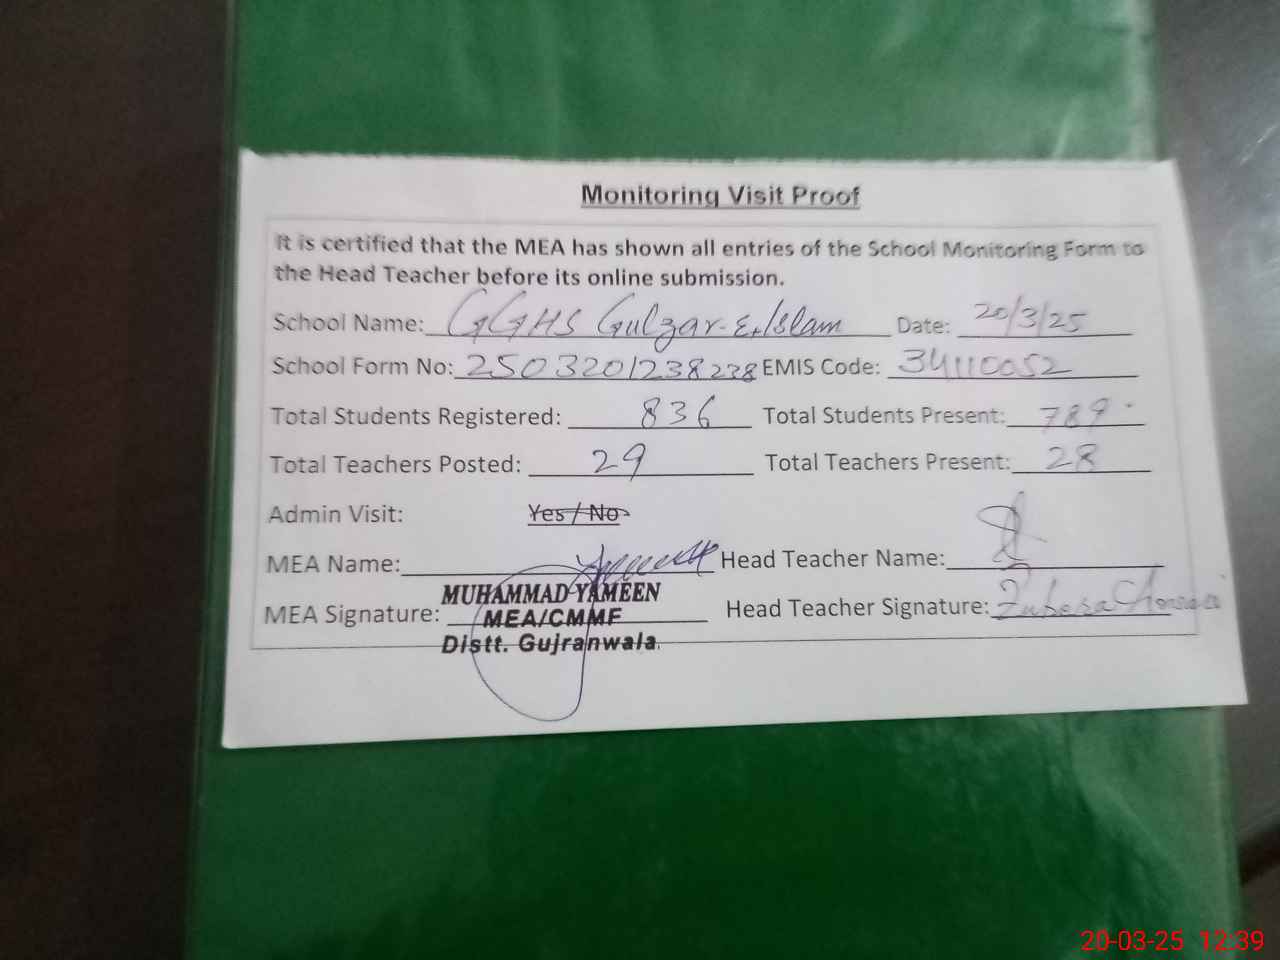 Monitoring Visit Proof
It is certified that the MEA has shown all entries of the School Monitoring Form to
the Head Teacher before its online submission.
School Name: GGHS Gulzar-E-Islam Date: 20/3/25
School Form No: 2503201238238 EMIS Code: 34110052
Total Students Registered: 836 Total Students Present: 789
Total Teachers Posted: 29 Total Teachers Present: 28
Admin Visit: Yes / No
MEA Name: Head Teacher Name:
MUHAMMAD YAMEEN
MEA Signature: MEA/CMMF Head Teacher Signature:
Distt. Gujranwala.
20-03-25 12:39